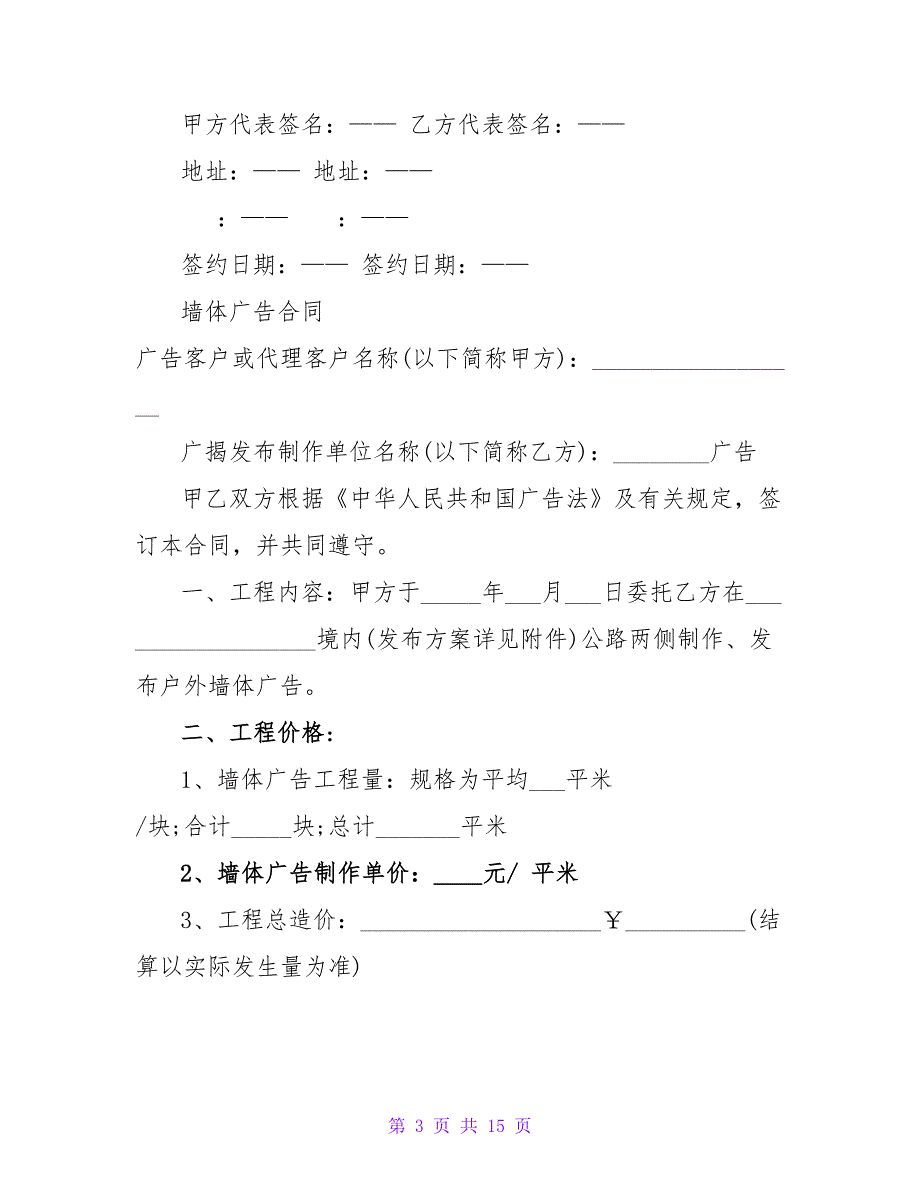 甲方代表签名：—— 乙方代表签名：——
地址：—— 地址：——
：—— ：——
签约日期：—— 签约日期：——
墙体广告合同
广告客户或代理客户名称(以下简称甲方)：________________
__
广揭发布制作单位名称(以下简称乙方)：________广告
甲乙双方根据《中华人民共和国广告法》及有关规定，签
订本合同，并共同遵守。
一、工程内容：甲方于_____年___月___日委托乙方在___
_______________境内(发布方案详见附件)公路两侧制作、发
布户外墙体广告。
二、工程价格：
1、墙体广告工程量：规格为平均___平米
/块;合计_____块;总计_______平米
2、墙体广告制作单价：____元/ 平米
3、工程总造价：____________________￥__________(结
算以实际发生量为准)
第 3 页 共 15 页